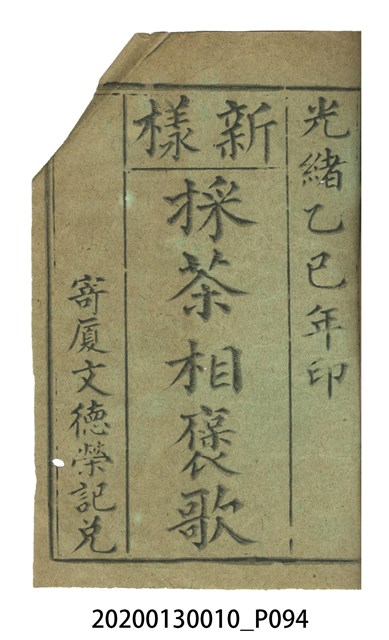 光緒乙巳年印
新樣
採茶相褒歌
寄厦文德榮記兌
20200130010_P094